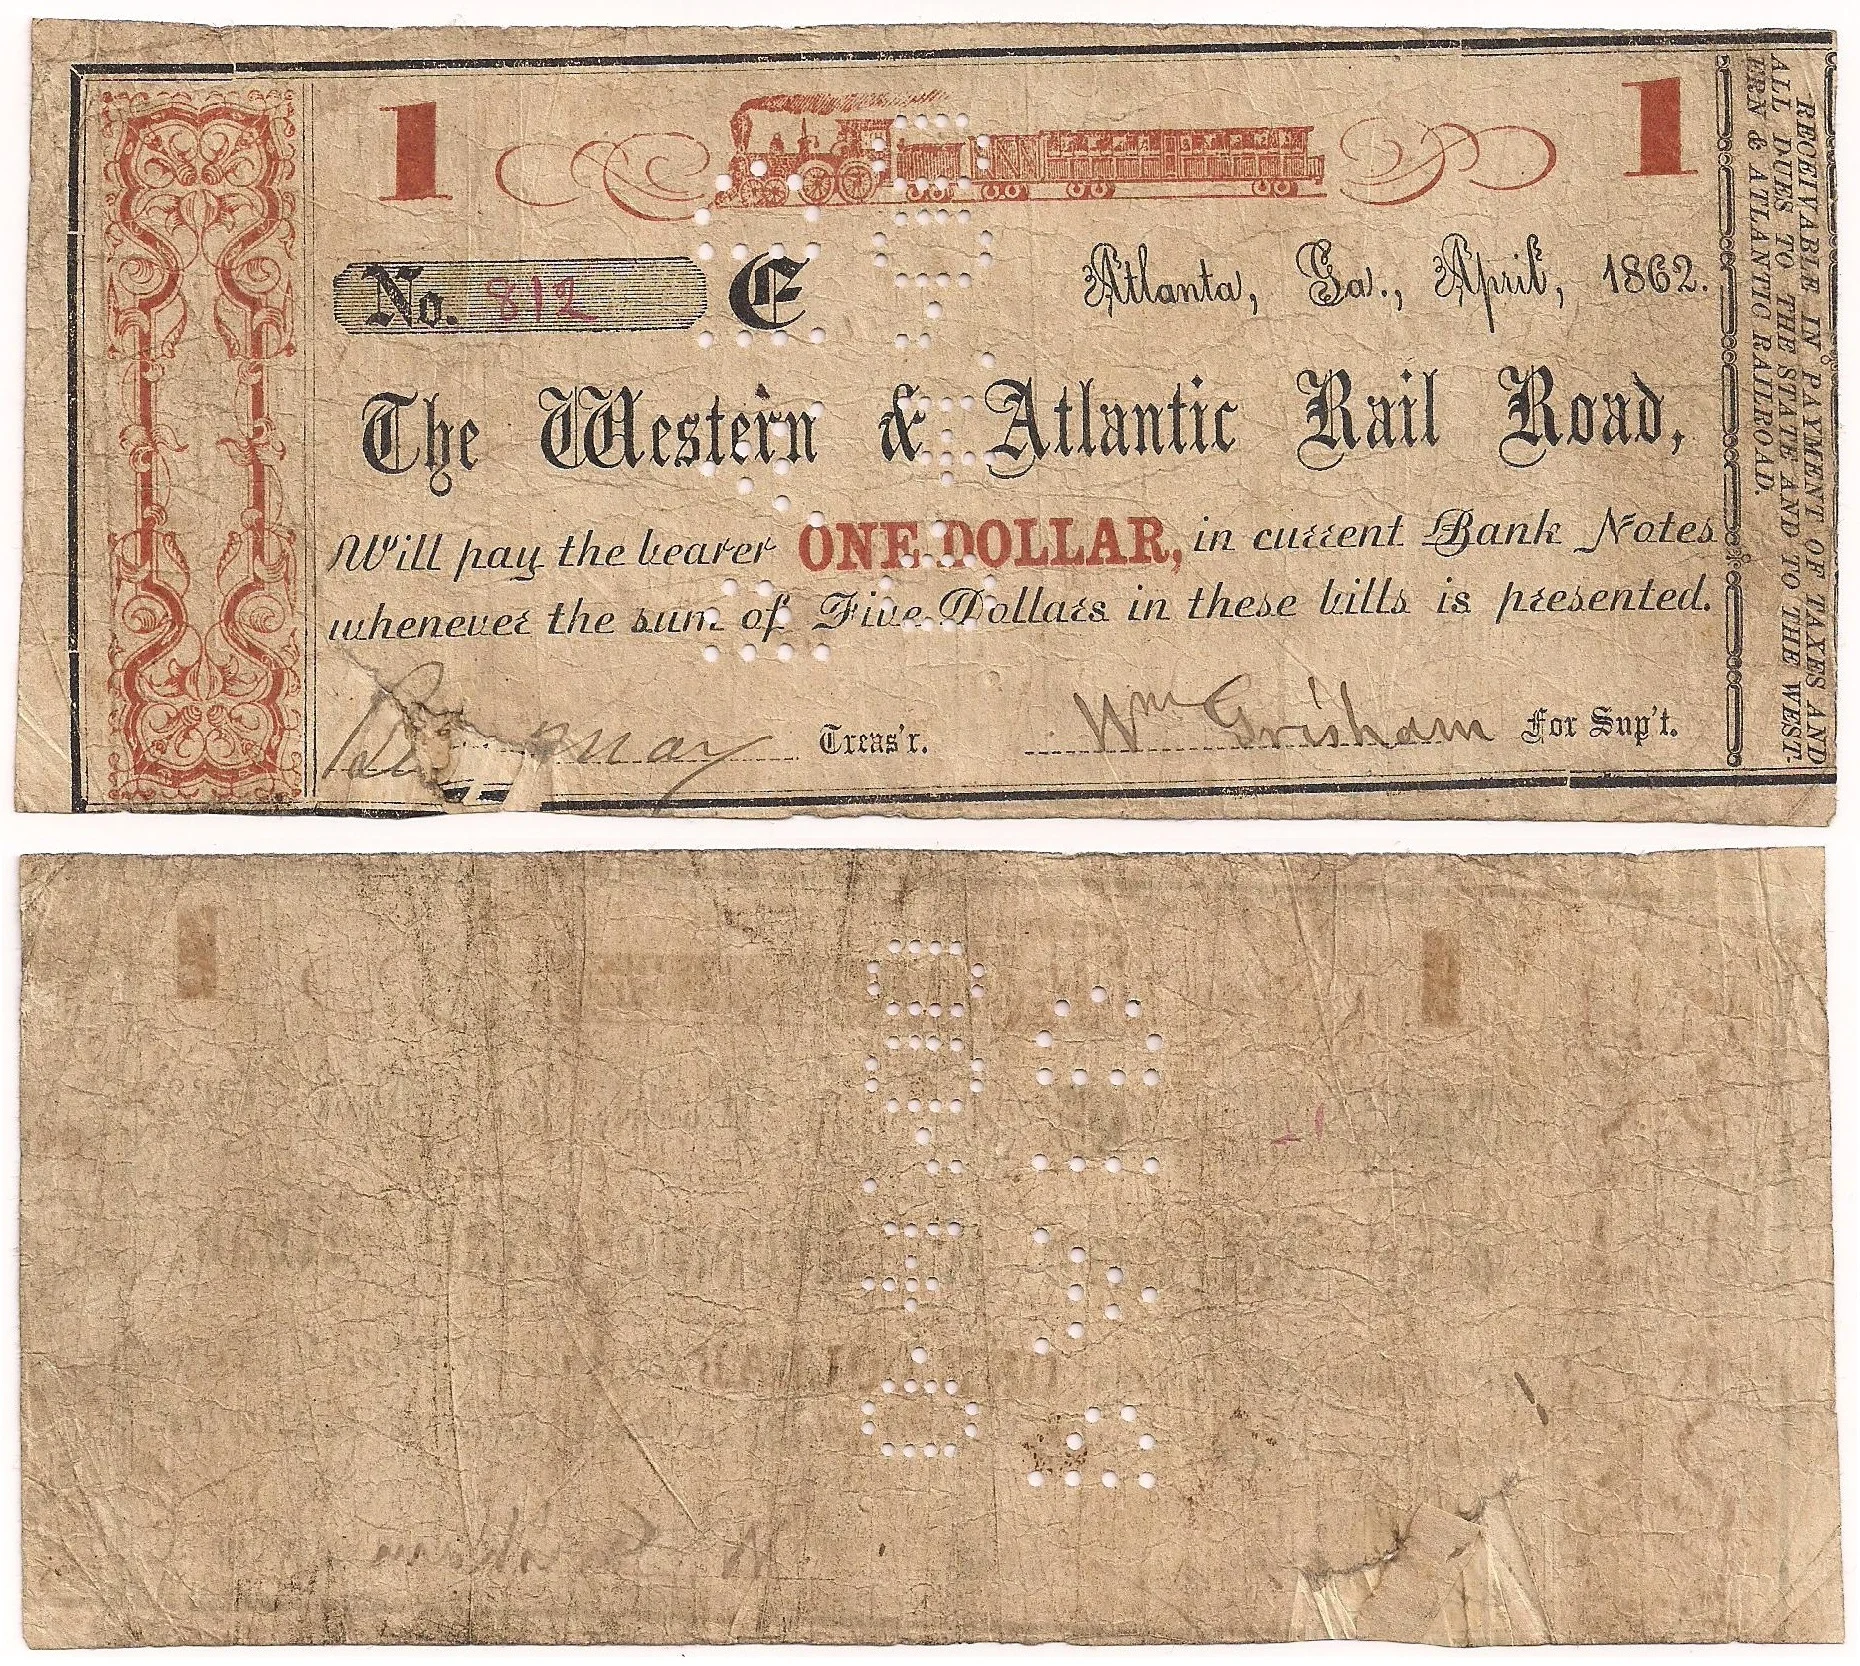 1 1
No. 812 E Atlanta, Ga., April, 1862.
The Western & Atlantic Rail Road,
Will pay the bearer ONE DOLLAR, in current Bank Notes
whenever the sum of Five Dollars in these bills is presented.
Treas'r. Wm Grisham For Sup't.
RECEIVABLE IN PAYMENT OF TAXES AND
ALL DUES TO THE STATE AND TO THE WEST-
ERN & ATLANTIC RAILROAD.